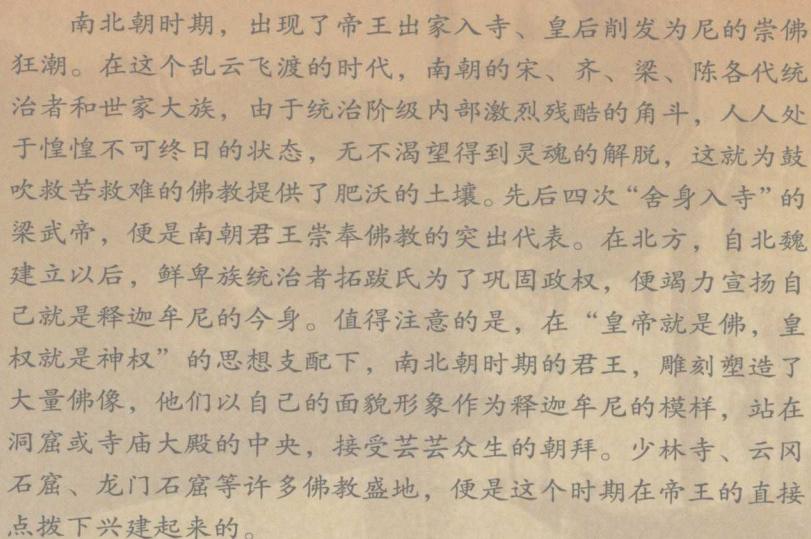 南北朝时期，出现了帝王出家入寺、皇后削发为尼的崇佛
狂潮。在这个乱云飞渡的时代，南朝的宋、齐、梁、陈各代统
治者和世家大族，由于统治阶级内部激烈残酷的角斗，人人处
于惶惶不可终日的状态，无不渴望得到灵魂的解脱，这就为鼓
吹救苦救难的佛教提供了肥沃的土壤。先后四次“舍身入寺”的
梁武帝，便是南朝君王崇奉佛教的突出代表。在北方，自北魏
建立以后，鲜卑族统治者拓跋氏为了巩固政权，便竭力宣扬自
己就是释迦牟尼的今身。值得注意的是，在“皇帝就是佛，皇
权就是神权”的思想支配下，南北朝时期的君王，雕刻塑造了
大量佛像，他们以自己的面貌形象作为释迦牟尼的模样，站在
洞窟或寺庙大殿的中央，接受芸芸众生的朝拜。少林寺、云冈
石窟、龙门石窟等许多佛教盛地，便是这个时期在帝王的直接
点拨下兴建起来的。